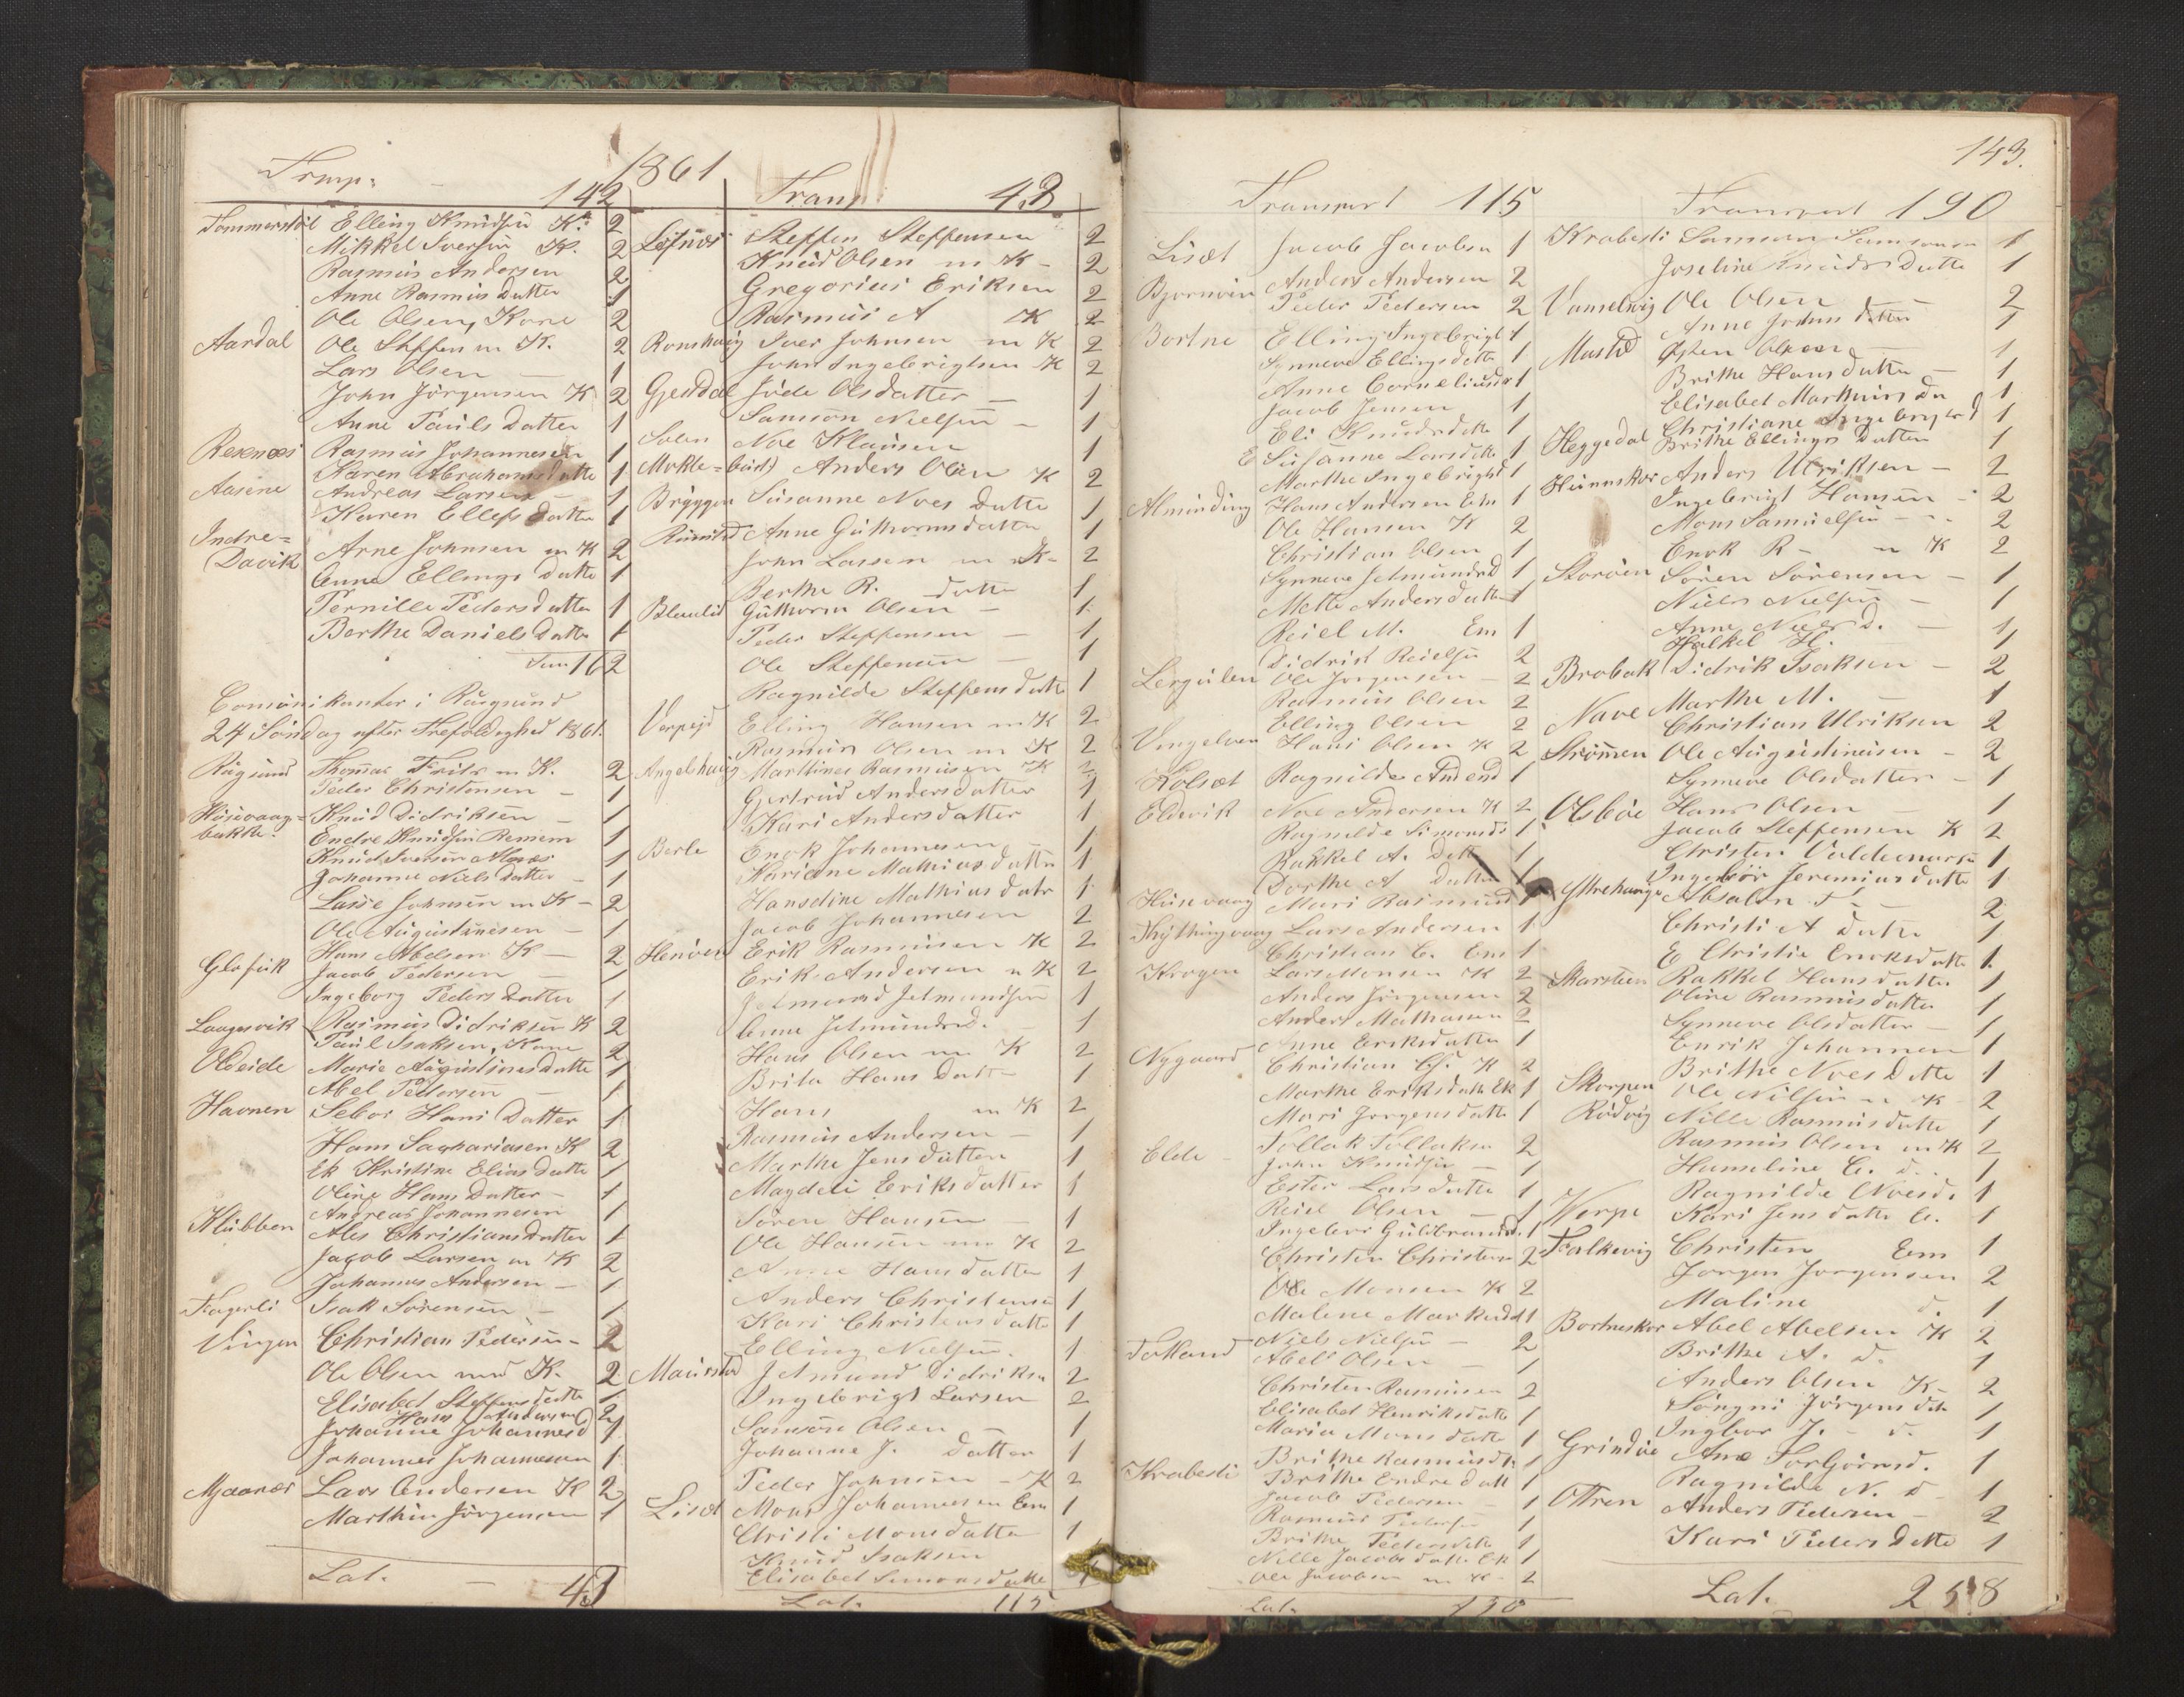 1861
Transp: 142
Tommerstöl Elling Knudsen K. 2
Mikkel Iversen K. 2
Rasmus Andersen 2
Anne Rasmus Datter 1
Ole Olsen, Kone 2
Aardal Ole Steffen m K. 2
Lars Olsen — 1
John Jörgensen K 2
Anne Pauls Datter 1
Rasmus Johannesen 1
Karen Abrahams datte 1
Aasene Andreas Larsen 1
Karen Ellefs Datter 1
Indre=
Davik Arne Johnsen m K 2
Anne Ellings Datte 1
Pernille Peders datter 1
Berthe Daniels Datte 1
Sum 162
Comunikanter i Rugsund
24 Söndag efter Trefoldighed 1861.
Rugsund Thomas Friis m K. 2
Peder Christensen — 1
Knud Didriksen — 1
bakke. Endre Knudsen 1
Knud Iversen 1
Johanne Niels Datter — 1
Lasse Johnsen m K — 2
Ole Augustinusen — 1
Hans Abelsen K — 2
Jacob Pedersen — 1
Ingeborg Peders Datter 1
Rasmus Didriksen K 2
Paul Isaksen, Kone 2
Oldeide Marie Augustinus Datte 1
Abel Pedersen — 1
Havnen Hans Datter 1
Hans Sachariasen K 2
Ek Christine Elias Datte 1
Oline Hans Datter — 1
Klubben Andreas Johannesen 1
Ales Christians Datter 1
Jacob Larsen m K 2
Johannes Andersen — 1
Fagerli Isak Sörensen — 1
Vingen Christian Pedersen — 2
Ole Olsen med K. 2
Elisabet Steffens datte 1
Hans Andersen 2
Johanne Johannesd 1
Johannes Johannesen 1
Lars Andersen K 2
Marthin Jörgensen 1
Lat. — 43
Trans 43
Steffen Steffensen 2
Knud Olsen m K — 2
Gregorius Eriksen 2
Rasmus A K 2
Iver Johnsen m K 2
John Ingebrigtsen K 2
Gjesdal Olsdatter — 1
Samson Nielsen — 1
Noe Klausen 1
Anders Olsen K 2
Bryggen Susanne Noes Datte 1
Anne Guthorms datter 1
John Lassen m K — 2
Berthe R. Datte 1
Guthorm Olsen — 1
Peder Steffensen — 1
Ole Steffensen — 1
Ragnilde Steffens Datte 1
Elling Hansen m K 2
Rasmus Olsen m K 2
Marthines Rasmusen K
Gjertrud Anders datter 1
Kari Anders datter 1
Berle Enok Johannesen — 1
Kariane Mathias datter 1
Hansdine Mathias datr 1
Jacob Johannesen 2
Erik Rasmusen K 2
Erik Andersen m K 2
Jetmund Jetmundsen 1
Anne Jetmundsd. — 1
Hans Olsen m K 2
Brita Hans Datt — 1
Hans m K 2
Rasmus Andersen — 1
Marthe Jens Datter 1
Magdeli Eriks datter 1
Sören Hansen — 1
Ole Hansen m K 2
Anne Hansdatter 1
Anders Christensen 1
Kari Christens datte 1
Elling Nielsen. 1
Maurstad Jetmund Didriksen 2
Ingebrigt Larsen 2
Samson Olsen — 1
Johanne J. datter 1
Peder Johnsen — K 2
Liset Mons Johannesen Em 1
Christi Monsdatter 1
Knud Isaksen
Elisabet Simonsdatte
Lat. 115
143.
Transport 115
Liset Jacob Jacobsen 1
Anders Andersen 2
Peder Pedersen 2
Bortne Elling Ingebrigt 1
Synneve Ellingsdatte 1
Anne Corneliusd 1
Jacob Jensen 1
Eli Knudsdatte 1
E Susanne Larsdatte 1
Marthe Ingebrigtsd 1
Alminding Hans Andersen Em 1
Ole Hansen K 2
Christian Olsen 1
Synneve Jetmundsd 1
Mette Anders datte 1
Reiel M. Em 1
Didrik Reielsen 2
Ole Jörgensen — 2
Rasmus Olsen 2
Elling Olsen 2
Vingelven Hans Olsen K 2
Ragnilde And end 1
Eldevik Noe Andersen K 2
Ragnilde Simonsd 1
Rakkel A. Datt 1
Dorthe A Datter 1
Husevaag Mari Rasmusd 1
Lars Andersen 1
Christian C. Em 1
Krogen Lars Monsen K 2
Anders Jörgensen 2
Anders Mathiasen 2
Nygaard Anne Eriksdatter 1
Christian K 2
Marthe Eriksdatte Ek 1
Mari Jörgensdatte 1
Elde — Tollak Tollaksen 2
John Knudsen — 1
Ester Larsdatte 1
Reiel Olsen — 1
Ingebor Guldbrandsd. 1
Christen Christensen 2
Ole Monsen K 2
Malene Markusd 1
Niels Nielsen — 2
Abel Olsen — 1
Christen Rasmusen 2
Elisabet Henriksdatte 1
Maria Monsdatte 1
Krabesti Brithe Rasmusdt 1
Brithe Endredatt 1
Jacob Pedersen — 1
Rasmus Pedersen 1
Brithe Pedersdatt 1
Nille Jacobsdatte Ek 1
Ole Jacobsen m K — 2
Lat. 190
Transport 190
Krabesti Samson Samsonsen 1
Joseline Knuds Datte 1
Ole Olsen 2
Anne Johns datter 1
Osten Olsen 1
Brithe Hansdatter — 1
Elisabet Marthins Da 1
Christiane Ingebrigtsd 1
Heggedal Brithe Ellings Datter 1
Anders Ulriksen — 2
Ingebrigt Hansen — 2
Mons Samuelsen — 2
Enok R — m K 2
Storöen Sören Sörensen — 1
Niels Nielsen — 1
Anne Niels D. — 1
Halkel H. 1
Brobak Didrik Isaksen — 2
Nave Marthe M. — 1
Christian Ulriksen 2
Strömmen Ole Augustinusen — 2
Synneve Olsdatter — 1
Hans Olsen — 1
Jacob Steffensen K 2
Christen Valdemarsen 1
Ingebör Jeremiasdatte 1
Absalon 2
Christi A Datte 1
E Christie Enoksdatte 1
Rakkel Hansdatter 1
Oline Rasmusdatter 1
Synneve Olsdatter — 1
Enrik Johannen 1
Brithe Noes Datte 1
Skorpen Ole Nilsen m K 2
Rödvig Nille Rasmusdatte 1
Rasmus Olsen m K 2
Hanseline C. d. 1
Ragnilde Noesd. 1
Kari Jens datte C. 1
Falkevig Christen Em 1
Jorgen Jorgensen 2
Maline d. 1
Bortneskor Abel Abelsen K 2
Brithe A. d. 1
Anders Olsen K — 2
Jörgensdatte 1
Ingbor J. — d. 1
Ane Torbjörnsd. 1
Ragnilde N. d 1
Otren Anders Pedersen — 2
Kari Peders datte 1
Lat. 258